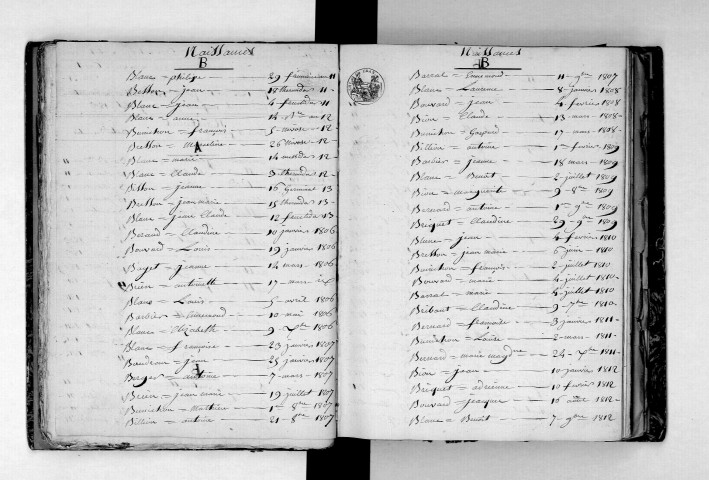 Naissances
B
Blanc = philipe — 29 frimaire an 11
Bethon = jean — 18 thermidor 11 -
Blanc = jean — 4 fructidor 11 -
Blanc = anne — 14 an 12
Bunichon = françois — 5 nivose - 12 -
Bretton = Marceline — 26 nivose - 12 -
A
Blanc = marie — 14 messidor 12 -
Blanc = Claude — 3 thermidor 12 -
jeanne — 16 germinal 13
Bretton = jean marie — 15 thermidor 13 -
Blanc = jean Claude — 12 fructidor 13
Beraud = Claudine — 10 janvier 1806
Bouvard = Louis — 19 janvier 1806
Bayet = jeanne — 14 mars - 1806
antoinette — 17 - mars
Blanc = Louis — 5 avril 1806
Barbier = — 10 mai 1806
Blanc = Elizabeth — 9 - Xbre 1806
Blanc = françoise — 23 janvier 1807
Baudran = jean — 25 janvier 1807
Berger = antoine — 7 - mars - 1807
jean marie — 19 juillet 1807
Bunichon = Mathieu — 1er 8bre 1807
Billion = antoine — 21 - 8bre 1807
Naissances
B
Barral = — 11 - 9bre 1807
Blanc = Laurence — 8 - janvier 1808
Bouvard = jean — 4 fevrier 1808
Bion = Claude — 13 - mars - 1808 -
Bunichon = Gaspard — 17 - mars - 1808 -
Billion = antoine — 1er fevrier 1809
Barbier = jeanne — 18 mars - 1809
Blanc = Benoit — 2 - juillet 1809
Bion = marguerite — 9 - 8bre 1809
Berard = antoine — 1er 9bre 1809
Briquet = Claudine — 29 - 9bre 1809
Blanc = jean — 4 fevrier 1810
Bretton = jean marie — 6 juin - 1810
Bunichon = françois — 2 juillet 1810
Bouvard = marie — 4 - juillet 1810 -
Barral = marie — 5 juillet 1810
Ribout = Claudine — 9 - 7bre 1810 -
Bernard = françoise — 3 janvier 1811 -
Bunichon = Louise — 2 - mars - 1811 -
Bernard = marie magdne — 24 - Xbre 1811 -
Bion = jean — 10 janvier 1812
Briquet = adrienne — 10 fevrier 1812
Bouvard = jacques — 16 août - 1812 -
Blanc = Benoit — 7 - 9bre 1812 -